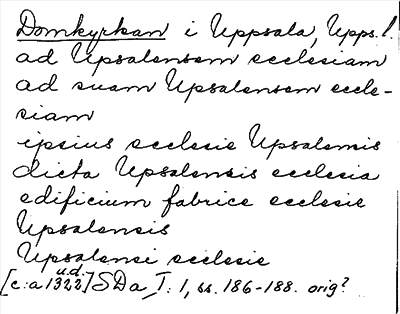 Domkyrkan i Uppsala, Upps. l.
ad Upsalensem ecclesiam
ad suam Upsalensem eccle-
siam
ipsius ecclesie Upsalensis
dicta Upsalensis ecclesia
edificium fabrice ecclesie
Upsalensis
Upsalensi ecclesie
u.d.
[c:a 1322] SDa I: 1, ss. 186-188. orig?